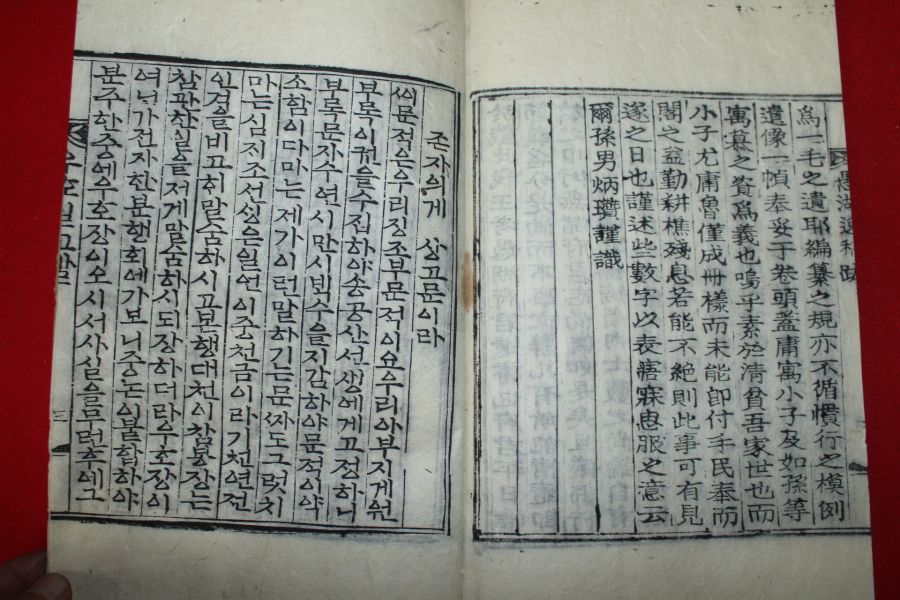 爲一毛之遺耶編纂之規亦不循慣行之模例
遺像一幀奉妥于卷頭盖庸寓小子及如孫等
寓慕之資爲義也嗚乎素於淸貧吾家世也而
小子尤庸魯僅成冊樣而未能卽付手民奉而
閣之益勤耕樵殘息若能不絶則此事可有見
遂之日也謹述些數字以表寤寐思服之意云
爾孫男炳瓚謹識
존자의게 상고문이라
문적은우리징조부문적이요우리아부지게원
부록이권을수집하야송공산선생에게고정하니
부록문자수연시만시빕수을지감하야문적이약
소함이다마는제가이런말하기는문짜도그럿치
마는심지조선싯은일언이중천금이라기천연전
인경을비고히말슴하시고분행대천이참봉장는
참판찬실을저게말슴하시되장하더라우호장이
여년가전자찬분행회에가보니중논이불합하야
분주한중에우호장이오시서사실을무런후에그
三